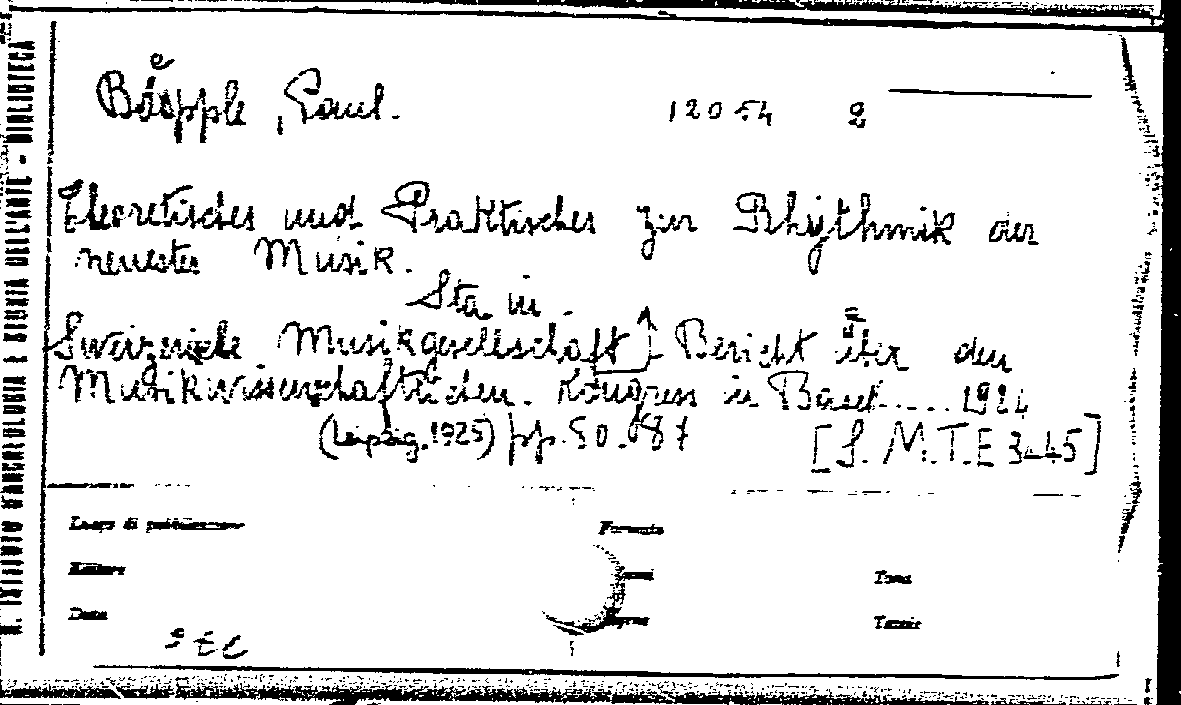 Băopple, Paul. 12054 2
Theoretisches und Praktisches zur Rhythmik der
neuesten Musik.
Sta in.
Sweizerische Musikgesellschaft Bericht über den
Musikwissenschaftlichen. Kongress in Basel..... 1924
(Leipzig. 1925) pp. 50-87 [S. M.T.E 3-45]
R. ISTITUTO D'ARCHEOLOGIA E STORIA DELL'ARTE - BIBLIOTECA
Luogo di pubblicazione Formato
Editore Tomo
Data Pagine Tavole